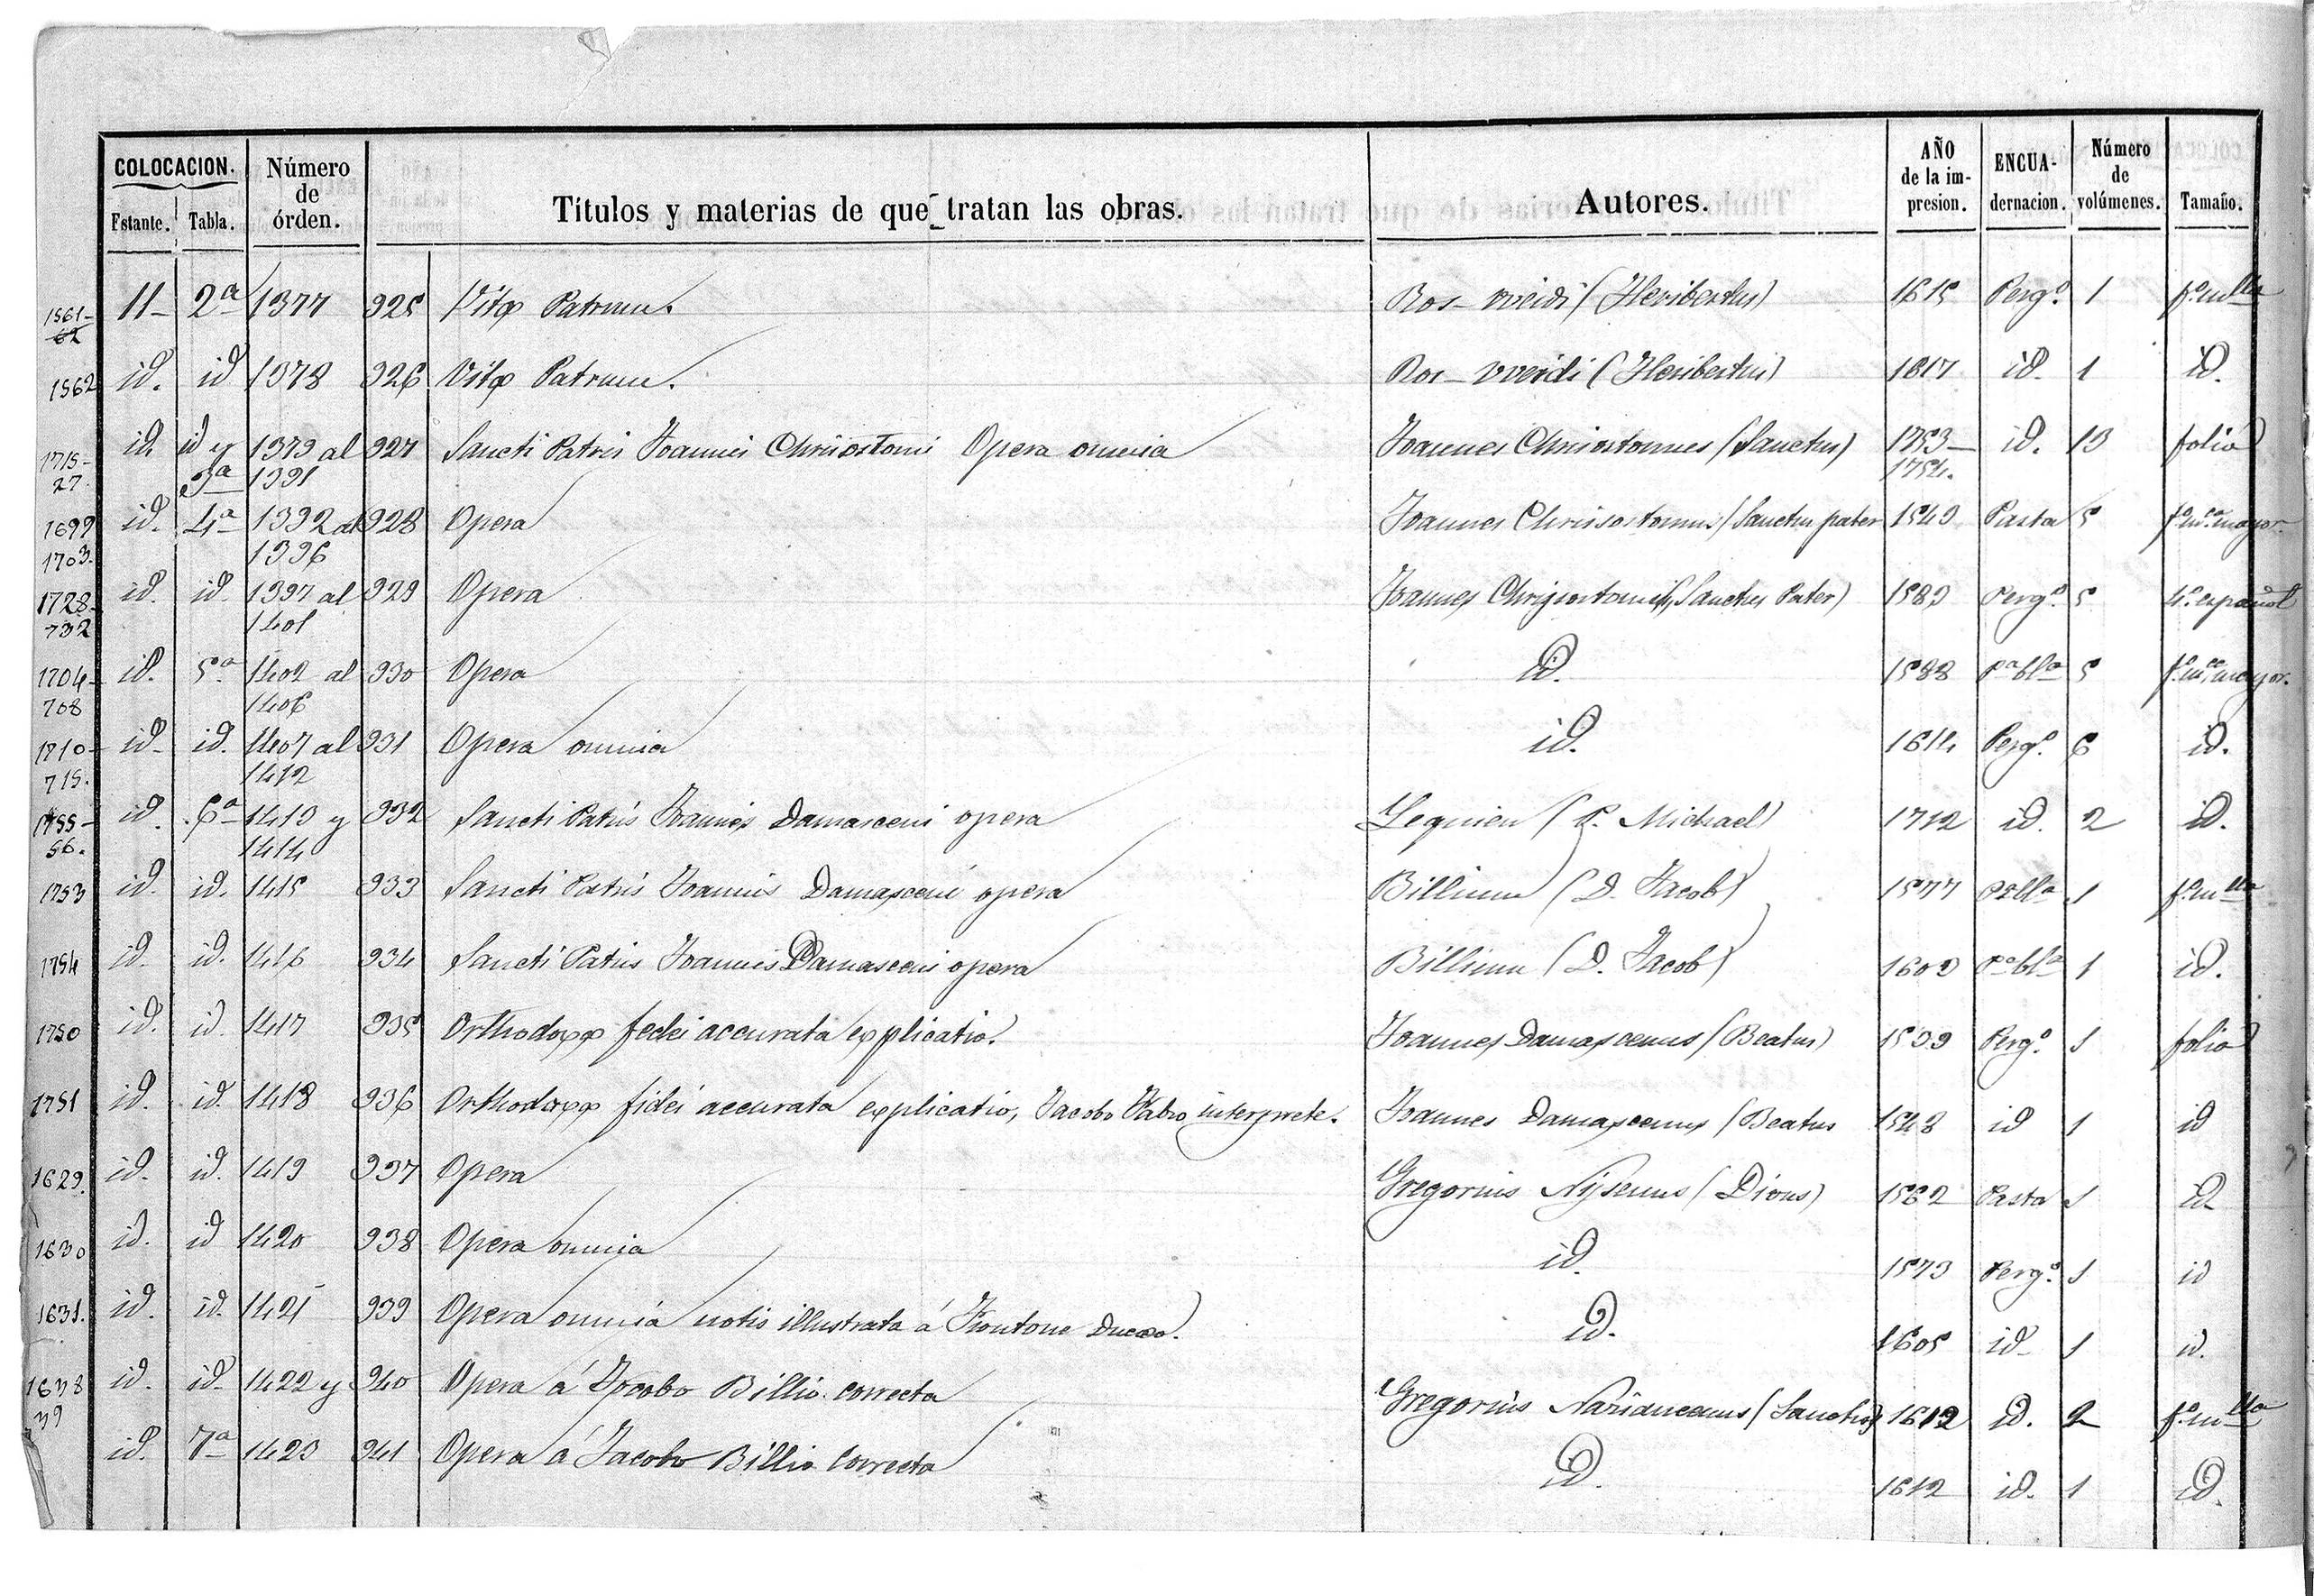 COLOCACION. Número de órden. Títulos y materias de que tratan las obras. Autores. AÑO de la impresion. ENCUADERNACION. Número de volúmenes. Tamaño.
Estante. Tabla.
1561-62 11 2ª 1377 925 Vitæ Patrum. Ros-weidi (Heribertus) 1615 Pergº. 1 fº. mlla
1562 id. id 1378 926 Vitæ Patrum. Ros-weidi (Heribertus) 1617 id. 1 id.
1715-27 id. id y 3ª 1379 al 1391 927 Sancti Patris Joannis Chrisostomi Opera omnia Joannes Chrisostomus (Sanctus) 1753-1754. id. 13 folio
1699 1703. id. 4ª 1392 al 1396 928 Opera Joannes Chrisostomus (Sanctus pater 1549 Pasta 5 fº. mca. mayor
1728-732 id. id. 1397 al 1401 929 Opera Joannes Chrisostomus (Sanctus Pater) 1583 Pergº. 5 4º. español
1704-708 id. 5ª 1402 al 1406 930 Opera id. 1588 Pª blª 5 fº. mca. mayor.
1710-715. id. id. 1407 al 1412 931 Opera omnia id. 1614 Pergº. 6 id.
1755-56. id. 6ª 1413 y 1414 932 Sancti Patris Joannis Damasceni opera Lequien (P. Michael) 1712 id. 2 id.
1753 id. id. 1415 933 Sancti Patris Joannis Damasceni opera Billium (D. Jacob) 1577 1 fº. mlla
1754 id. id. 1416 934 Sancti Patris Joannis Damasceni opera Billium (D. Jacob) 1603 Pª blª 1 id.
1750 id. id. 1417 935 Orthodoxæ fedei accurata explicatio. Joannes Damascenus (Beatus) 1539 Pergº. 1 folio
1751 id. id. 1418 936 Orthodoxæ fidei accurata explicatio, Jacobo Fabro interprete. Joannes Damascenus (Beatus 1548 id 1 id
1629. id. id. 1419 937 Opera Gregorius Nysenus (Divus) 1562 Pasta 1 id
1630 id. id 1420 938 Opera omnia id. 1573 Pergº. 1 id
1631. id. id. 1421 939 Opera omnia notis illustrata á Frontone Ducæo. id. 1605 id 1 id.
1638 39 id. id. 1422 y 940 Opera á Jocobo Billio correcta Gregorius Nazianceanus (Sanctus) 1612 id. 2 fº. mlla
id. 7ª 1423 941 Opera á Jacobo Billio correcta id. 1612 id. 1 id.